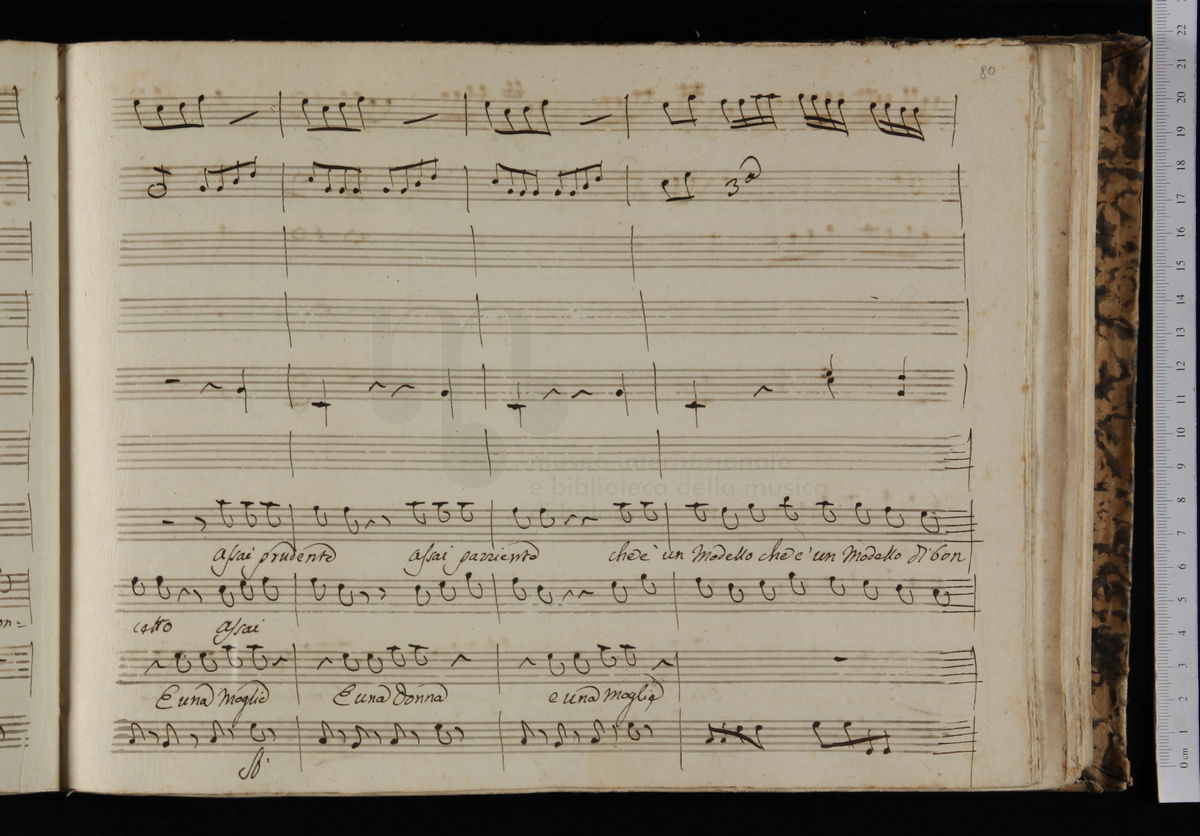 80
3ª
museo internazionale
e biblioteca della musica
assai prudente assai pazziente che e' un Modello che e' un Modello di bon
cetto assai
on=
E una Moglie E una donna e una Moglie
22
21
20
19
18
17
16
15
14
13
12
11
10
9
8
7
6
5
4
3
2
1
0 cm